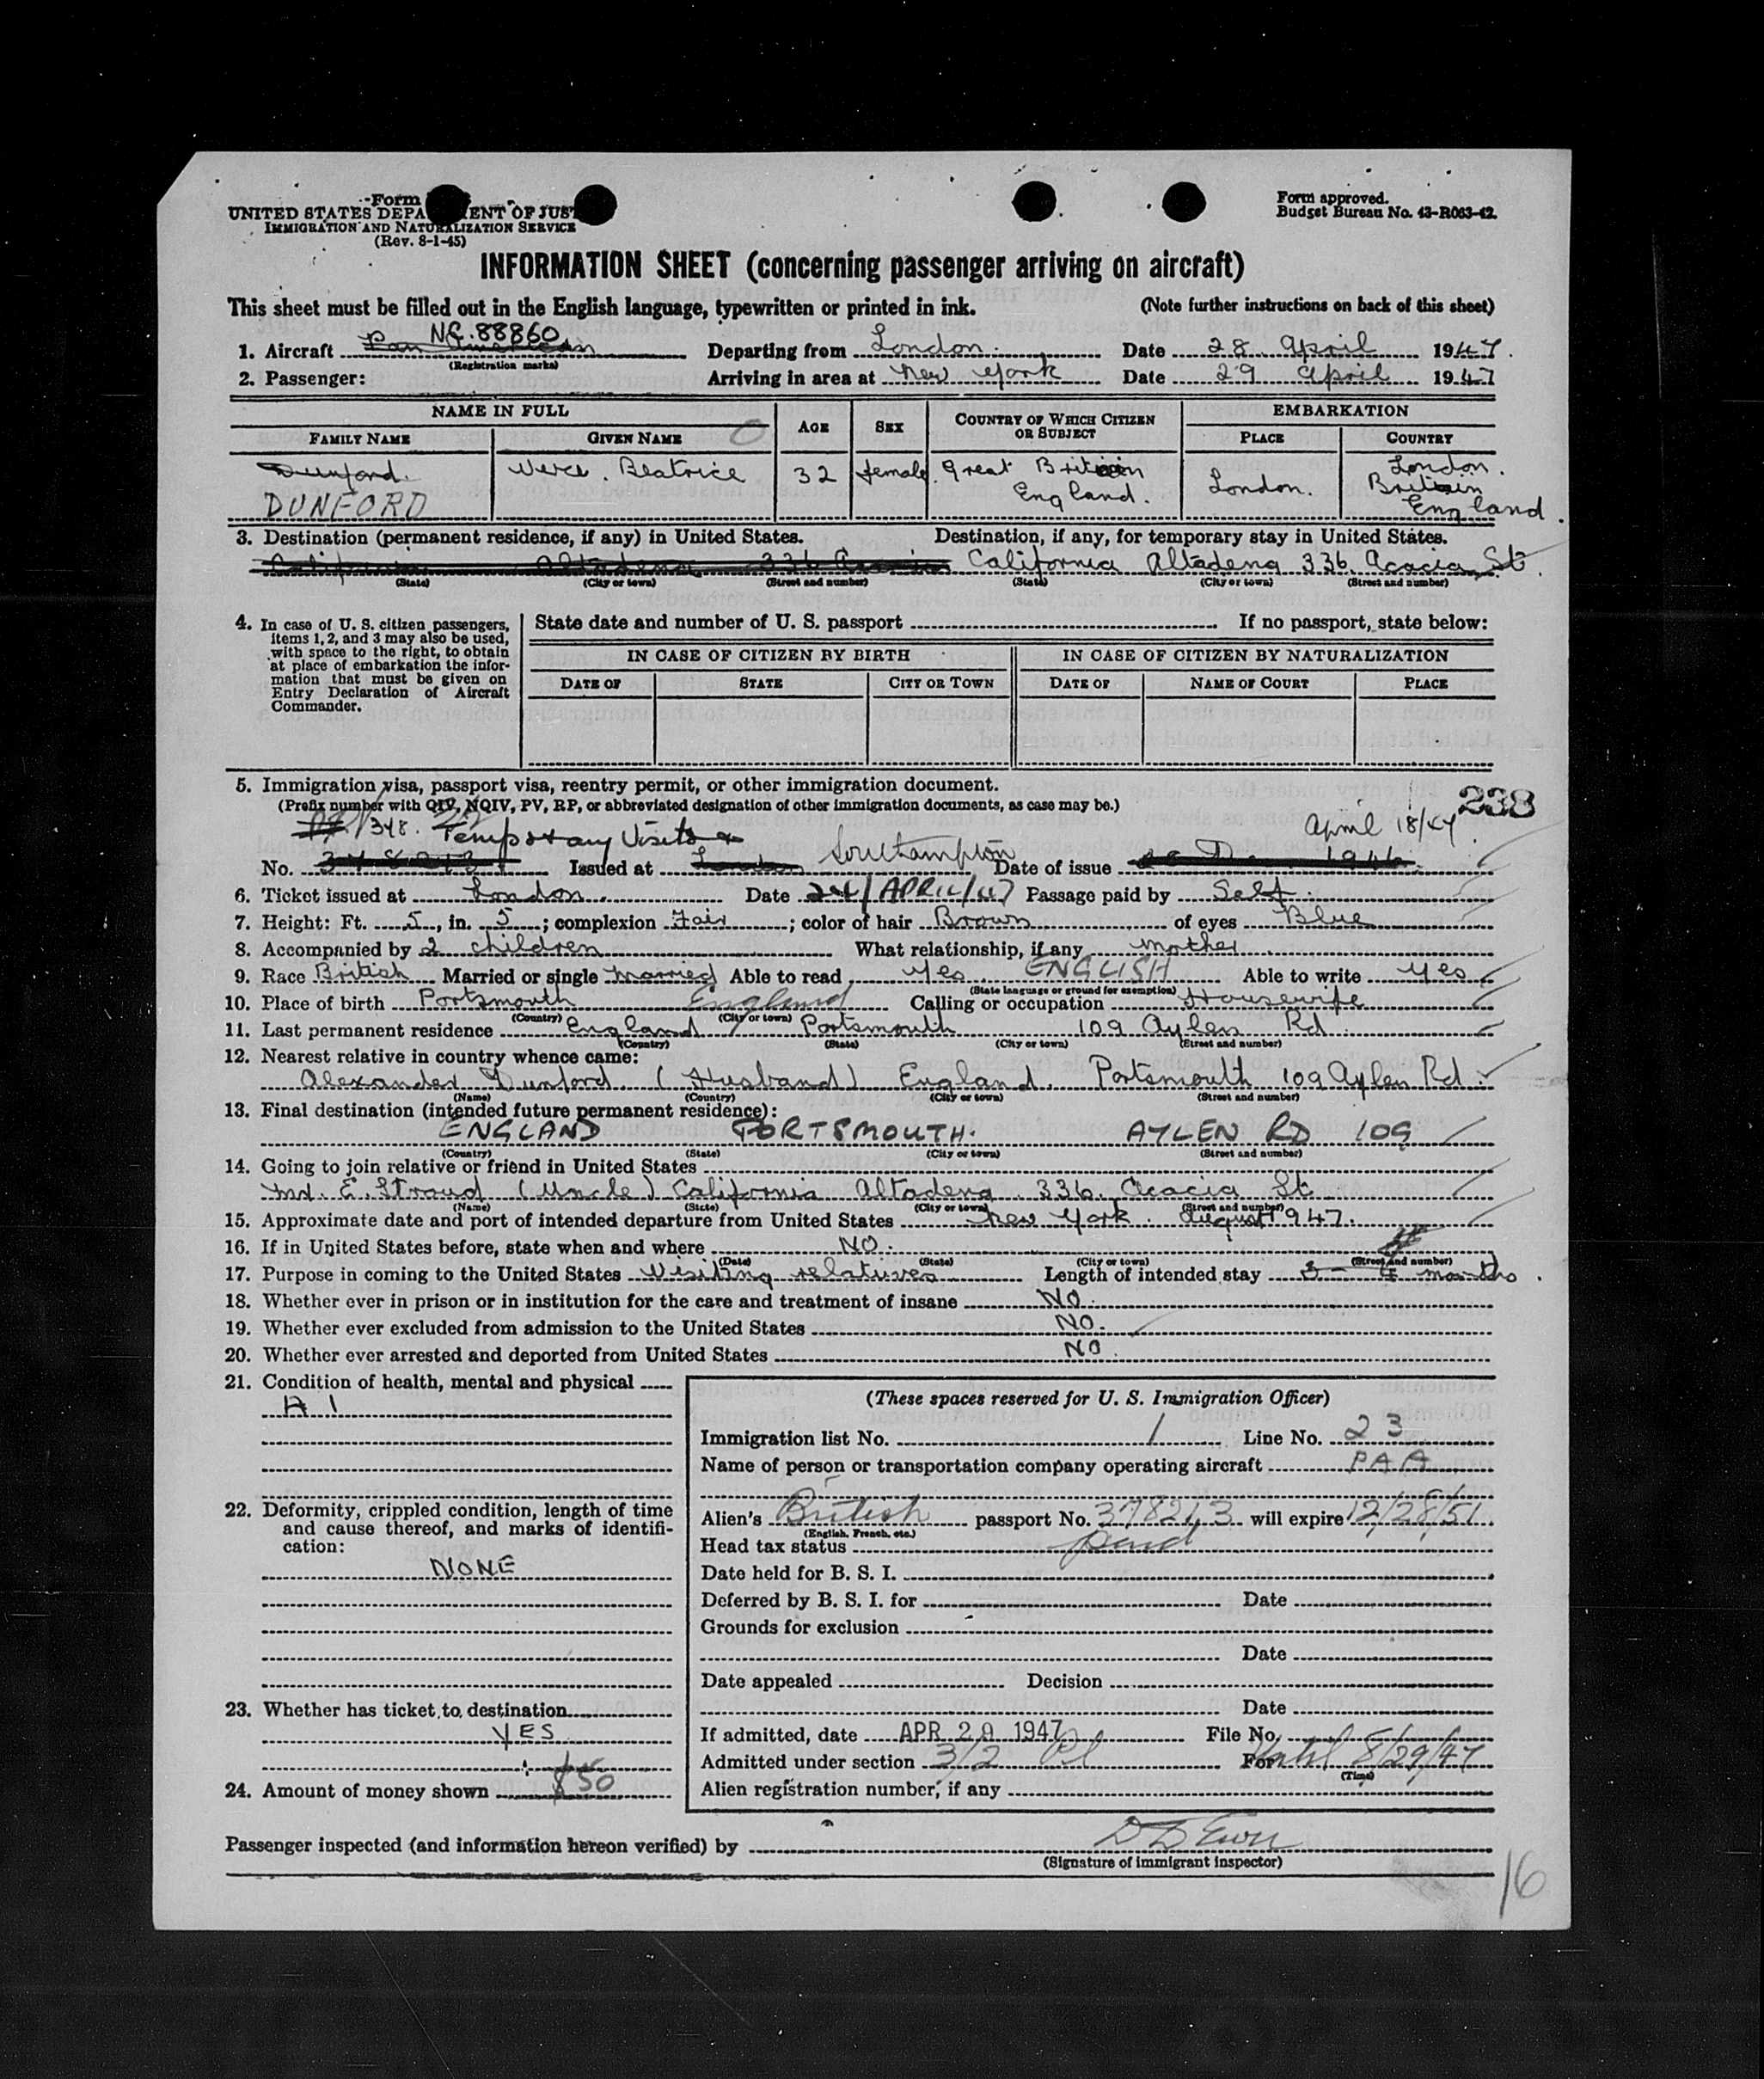 Form
UNITED STATES DEPA ENT OF JUS
IMMIGRATION AND NATURALIZATION SERVICE
(Rev. 8-1-45)
Form approved.
Budget Bureau No. 43-R063-42.
INFORMATION SHEET (concerning passenger arriving on aircraft)
This sheet must be filled out in the English language, typewritten or printed in ink. (Note further instructions on back of this sheet)
NC. 88860
1. Aircraft Pan American Departing from London. Date 28 April 1947.
(Registration marks)
2. Passenger: Arriving in area at New York Date 29 April 1947
NAME IN FULL AGE SEX COUNTRY OF WHICH CITIZEN OR SUBJECT EMBARKATION
FAMILY NAME GIVEN NAME PLACE COUNTRY
Dunford. Beatrice 32 female. Great Britain London. London.
DUNFORD England. Britain
England.
3. Destination (permanent residence, if any) in United States. Destination, if any, for temporary stay in United States.
California Altadena 336 Acacia California Altadena 336. Acacia St.
(State) (City or town) (Street and number) (State) (City or town) (Street and number)
4. In case of U. S. citizen passengers, items 1, 2, and 3 may also be used, with space to the right, to obtain at place of embarkation the information that must be given on Entry Declaration of Aircraft Commander.
State date and number of U. S. passport If no passport, state below:
IN CASE OF CITIZEN BY BIRTH IN CASE OF CITIZEN BY NATURALIZATION
DATE OF STATE CITY OR TOWN DATE OF NAME OF COURT PLACE
5. Immigration visa, passport visa, reentry permit, or other immigration document.
(Prefix number with QIV, NQIV, PV, RP, or abbreviated designation of other immigration documents, as case may be.)
238
348. Temporary Visitor Southampton April 18/47
No. 378213 Issued at London Date of issue 1946.
6. Ticket issued at London. Date 24/APRIL/47 Passage paid by Self.
7. Height: Ft. 5, in. 5; complexion Fair; color of hair Brown of eyes Blue
8. Accompanied by 2 children What relationship, if any mother
9. Race British Married or single Married Able to read yes ENGLISH Able to write yes
(State language or ground for exemption)
10. Place of birth Portsmouth England Calling or occupation Housewife
(Country) (City or town)
11. Last permanent residence England Portsmouth 109 Aylen Rd
(Country) (State) (City or town) (Street and number)
12. Nearest relative in country whence came:
Alexander Dunford. (Husband) England. Portsmouth 109 Aylen Rd.
(Name) (Country) (City or town) (Street and number)
13. Final destination (intended future permanent residence):
ENGLAND PORTSMOUTH. AYLEN RD 109
(Country) (State) (City or town) (Street and number)
14. Going to join relative or friend in United States
Mr. E. Stroud (Uncle) California Altadena. 336. Acacia St.
(Name) (State) (City or town) (Street and number)
15. Approximate date and port of intended departure from United States New York. August 1947.
16. If in United States before, state when and where NO.
(Date) (State) (City or town) (Street and number)
17. Purpose in coming to the United States Visiting relatives Length of intended stay 3 - 4 months.
18. Whether ever in prison or in institution for the care and treatment of insane NO.
19. Whether ever excluded from admission to the United States NO.
20. Whether ever arrested and deported from United States NO.
21. Condition of health, mental and physical
A 1
22. Deformity, crippled condition, length of time and cause thereof, and marks of identification:
NONE
23. Whether has ticket to destination
YES
24. Amount of money shown $50
(These spaces reserved for U. S. Immigration Officer)
Immigration list No. 1 Line No. 23
Name of person or transportation company operating aircraft PAA
Alien's British passport No. 378213 will expire 12/28/51.
(English, French, etc.)
Head tax status paid
Date held for B. S. I.
Deferred by B. S. I. for Date
Grounds for exclusion
Date
Date appealed Decision
Date
If admitted, date APR 29 1947 File No.
Admitted under section 3/2 For until 8/29/47
(Time)
Alien registration number, if any
Passenger inspected (and information hereon verified) by
(Signature of immigrant inspector)
16